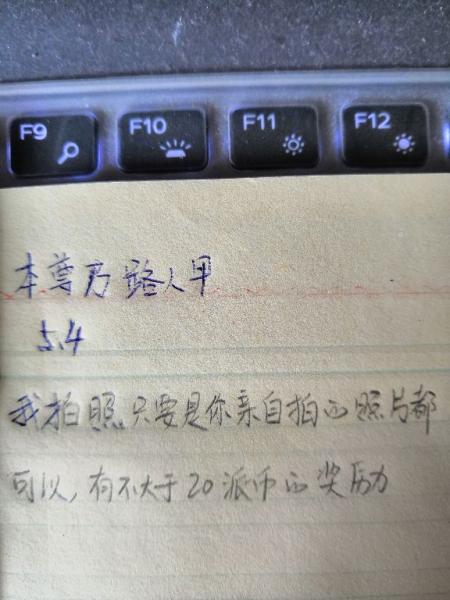 F9 F10 F11 F12
本尊乃路人甲
5.4
我拍照只要是你亲自拍的照片都
可以,有不大于20派币的奖励